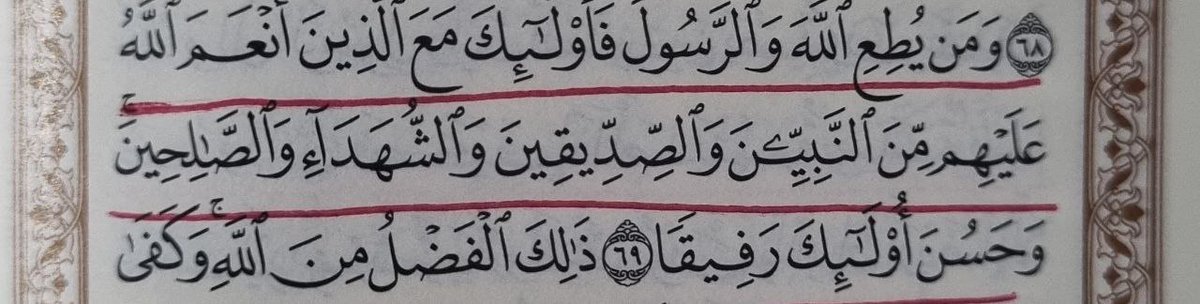 ٦٨ وَمَن يُطِعِ ٱللَّهَ وَٱلرَّسُولَ فَأُو۟لَـٰٓئِكَ مَعَ ٱلَّذِينَ أَنْعَمَ ٱللَّهُ
عَلَيْهِم مِّنَ ٱلنَّبِيِّـۧنَ وَٱلصِّدِّيقِينَ وَٱلشُّهَدَآءِ وَٱلصَّـٰلِحِينَ ۚ
وَحَسُنَ أُو۟لَـٰٓئِكَ رَفِيقًا ٦٩ ذَٰلِكَ ٱلْفَضْلُ مِنَ ٱللَّهِ ۚ وَكَفَىٰ